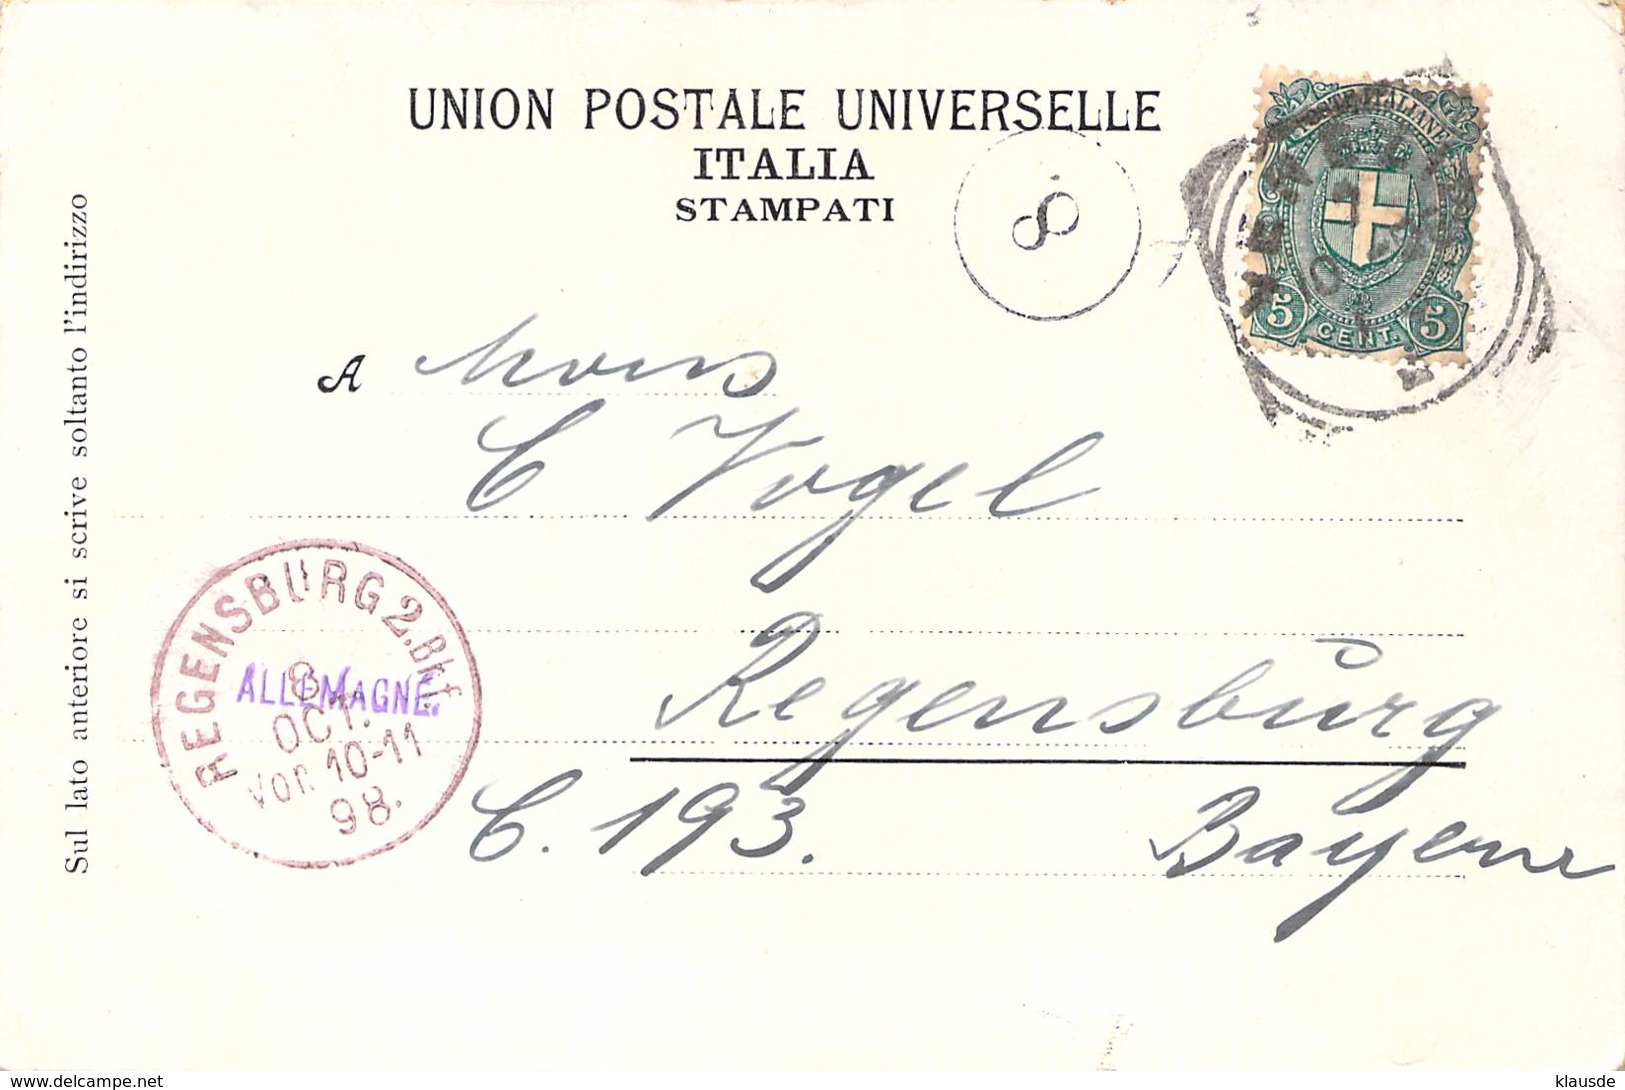 UNION POSTALE UNIVERSELLE
ITALIA
STAMPATI
8
POSTE ITALIANE
5 CENT. 5
A Mons
C Vogel
Regensburg
C. 193. Bayern
REGENSBURG 2. Bhf.
8
OCT.
Vor. 10-11
98.
ALLEMAGNE.
Sul lato anteriore si scrive soltanto l'indirizzo
www.delcampe.net
klausde